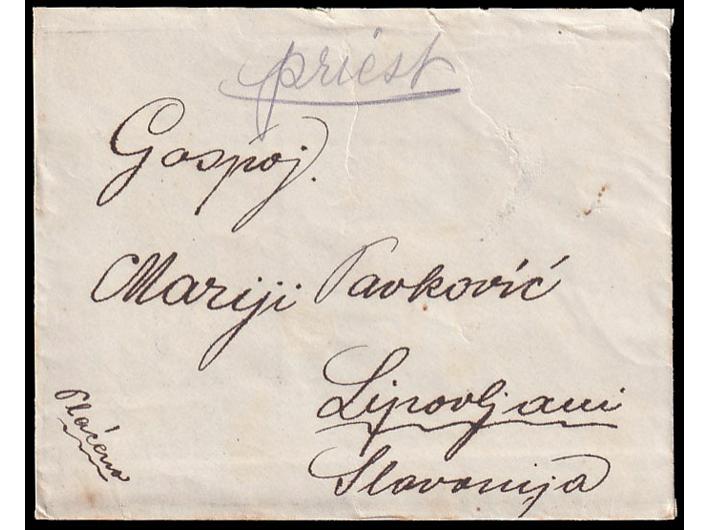 priest
Gospoj.
Mariji Pavković
Lipovljani
Slavonija
Plaćeno